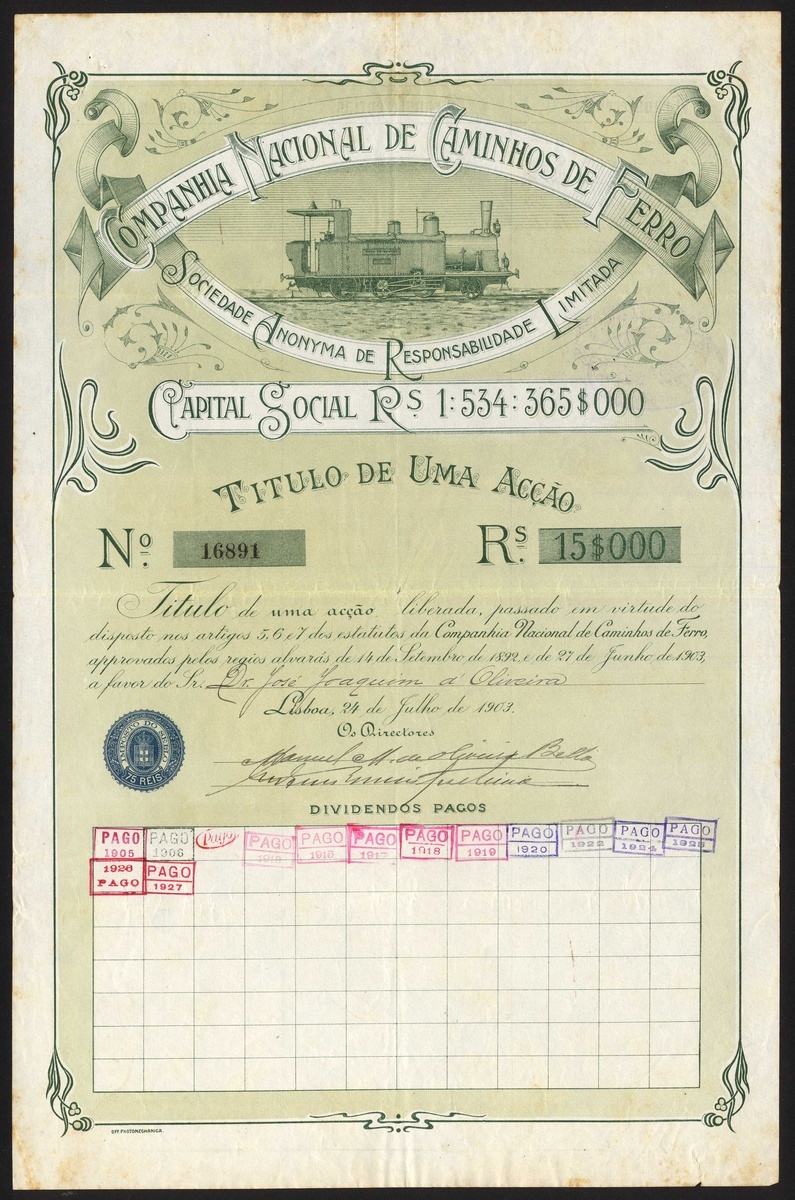 COMPANHIA NACIONAL DE CAMINHOS DE FERRO
SOCIEDADE ANONYMA DE RESPONSABILIDADE LIMITADA
CAPITAL SOCIAL RS 1:534:365$000
TITULO DE UMA ACÇÃO
Nº. 16891 RS. 15$000
Titulo de uma acção liberada, passado em virtude do
disposto nos artigos 5, 6 e 7 dos estatutos da Companhia Nacional de Caminhos de Ferro,
approvados pelos regios alvarás de 14 de Setembro de 1892 e de 27 de Junho de 1903,
a favor do Sr. Dr. José Joaquim d'Oliveira
Lisboa, 24 de Julho de 1903.
Os Directores
Manuel M. de Oliveira Bello
IMPOSTO DO SELLO
75 REIS
DIVIDENDOS PAGOS
PAGO PAGO Pago PAGO PAGO PAGO PAGO PAGO PAGO PAGO PAGO PAGO
1905 1906 1917 1918 1919 1920 1922 1924
1926 PAGO
PAGO 1927
OFF. PHOTOMECHANICA.